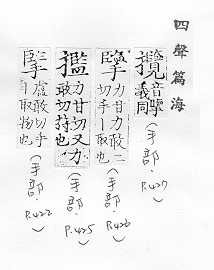 四聲篇海
攬 義同
(手部. P.427)
力甘力敢二
切手丨取也
(手部. P.426)
力甘切又力
敢切持也
(手部. P.425)
敢切手
取物也
(手部. P.422)